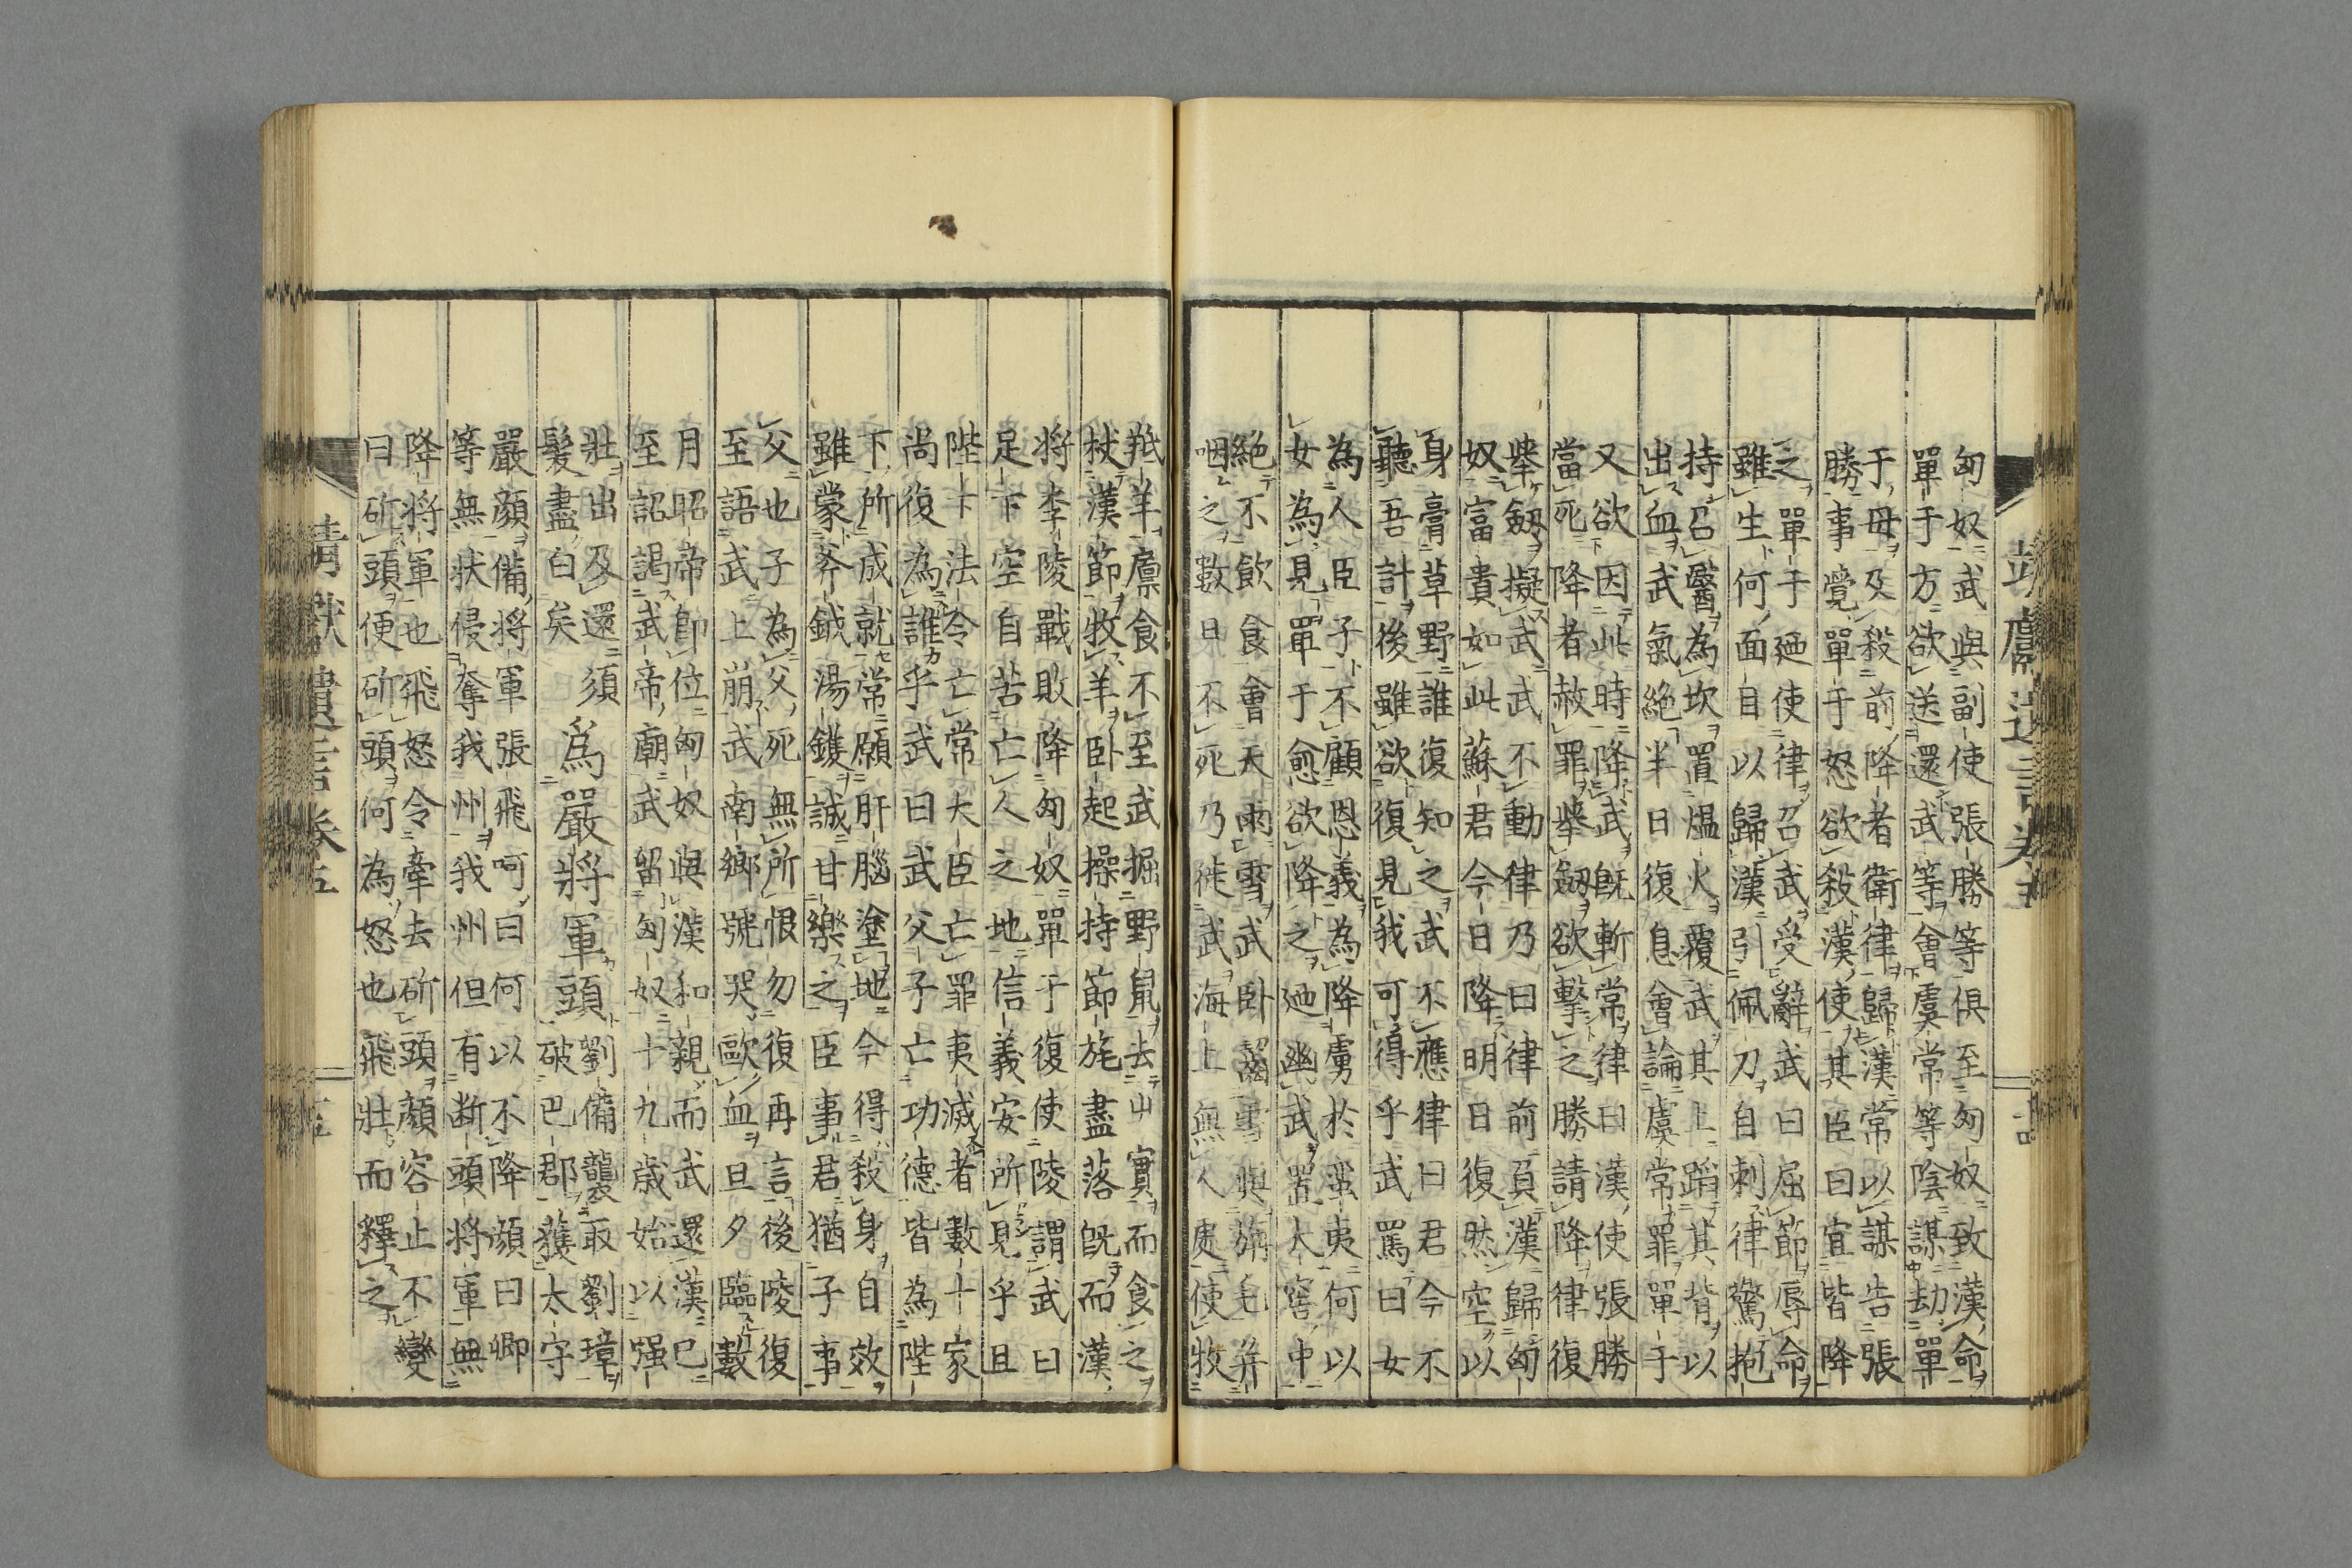 靖獻遺言卷五
匈奴武與副使張勝等俱至匈奴致漢命
單于方欲送還武等會虞常等陰謀劫單
于母及殺前降者衛律歸漢常以謀告張
勝事覺單于怒欲殺漢使其臣曰宜皆降
之單于廼使律召武受辭武曰屈節辱命
雖生何面目以歸漢引佩刀自刺律驚抱
持召醫為坎置熅火覆武其上蹈其背以
出血武氣絶半日復息會論虞常罪單于
又欲因此時降武既斬常律曰漢使張勝
當死降者赦罪舉劔欲擊之勝請降律復
舉劔擬武武不動律乃曰律前負漢歸匈
奴富貴如此蘇君今日降明日復然空以
身膏草野誰復知之武不應律曰君今不
聽吾計後雖欲復見我可得乎武罵曰女
為人臣子不顧恩義為降虜於蛮夷何以
女為見單于愈欲降之廼幽武置大窖中
絶不飲食會天雨雪武卧齧雪與旃毛并
咽之數日不死乃徙武海上無人處使牧
羝羊廩食不至武掘野鼠去屮實而食之
杖漢節牧羊卧起操持節旄盡落既而漢
将李陵戰敗降匈奴單于復使陵謂武曰
足下空自苦亡人之地信義安所見乎且
陛下法令亡常大臣亡罪夷滅者數十家
尚復為誰乎武曰武父子亡功德皆為陛
下所成就常願肝腦塗地今得殺身自效
雖蒙斧鉞湯鑊誠甘樂之臣事君猶子事
父也子為父死無所恨勿復再言後陵復
至語武上崩武南鄉號哭歐血旦夕臨數
月昭帝卽位匈奴與漢和親而武還漢已
至詔謁武帝廟武留匈奴十九歲始以强
壯出及還須
髮盡白矣
爲嚴將軍頭
劉備襲取劉璋
破巴郡獲太守
嚴顔備将軍張飛呵曰何以不降顔曰卿
等無状侵奪我州我州但有断頭将軍無
降将軍也飛怒令牽去斫頭顔容止不變
曰斫頭便斫頭何為怒也飛壯而釋之
靖獻遺言卷五